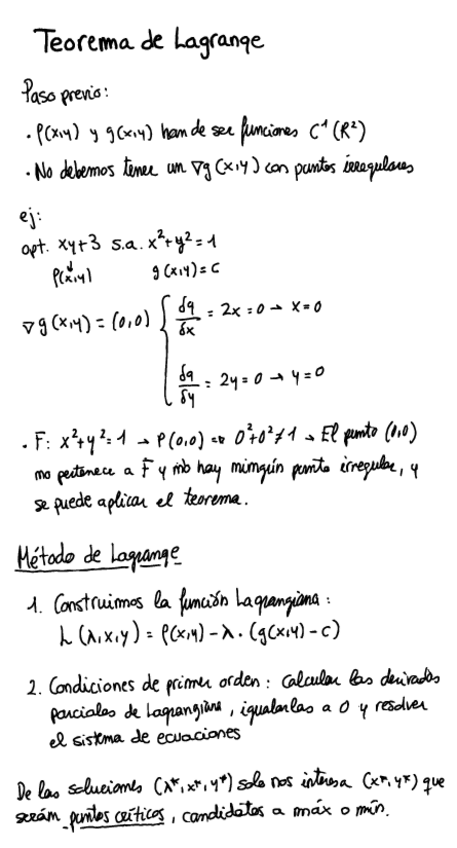 Teorema de Lagrange
Paso previo:
· f(x,y) y g(x,y) han de ser funciones C¹(R²)
· No debemos tener un ∇g(x,y) con puntos irregulares
ej:
opt. xy+3 s.a. x²+y²=1
↓
f(x,y) g(x,y)=c
∇g(x,y) = (0,0) { δg/δx = 2x = 0 → x=0
δg/δy = 2y = 0 → y=0
· F: x²+y²=1 → P(0,0) ⇒ 0²+0²≠1 → El punto (0,0)
no pertenece a F y no hay ningún punto irregular, y
se puede aplicar el teorema.
Método de Lagrange
1. Construimos la función Lagrangiana:
L(λ,x,y) = f(x,y) - λ · (g(x,y) - c)
2. Condiciones de primer orden: Calcular las derivadas
parciales de Lagrangiana, igualarlas a 0 y resolver
el sistema de ecuaciones
De las soluciones (λ*, x*, y*) solo nos interesa (x*, y*) que
serán puntos críticos, candidatos a máx o mín.